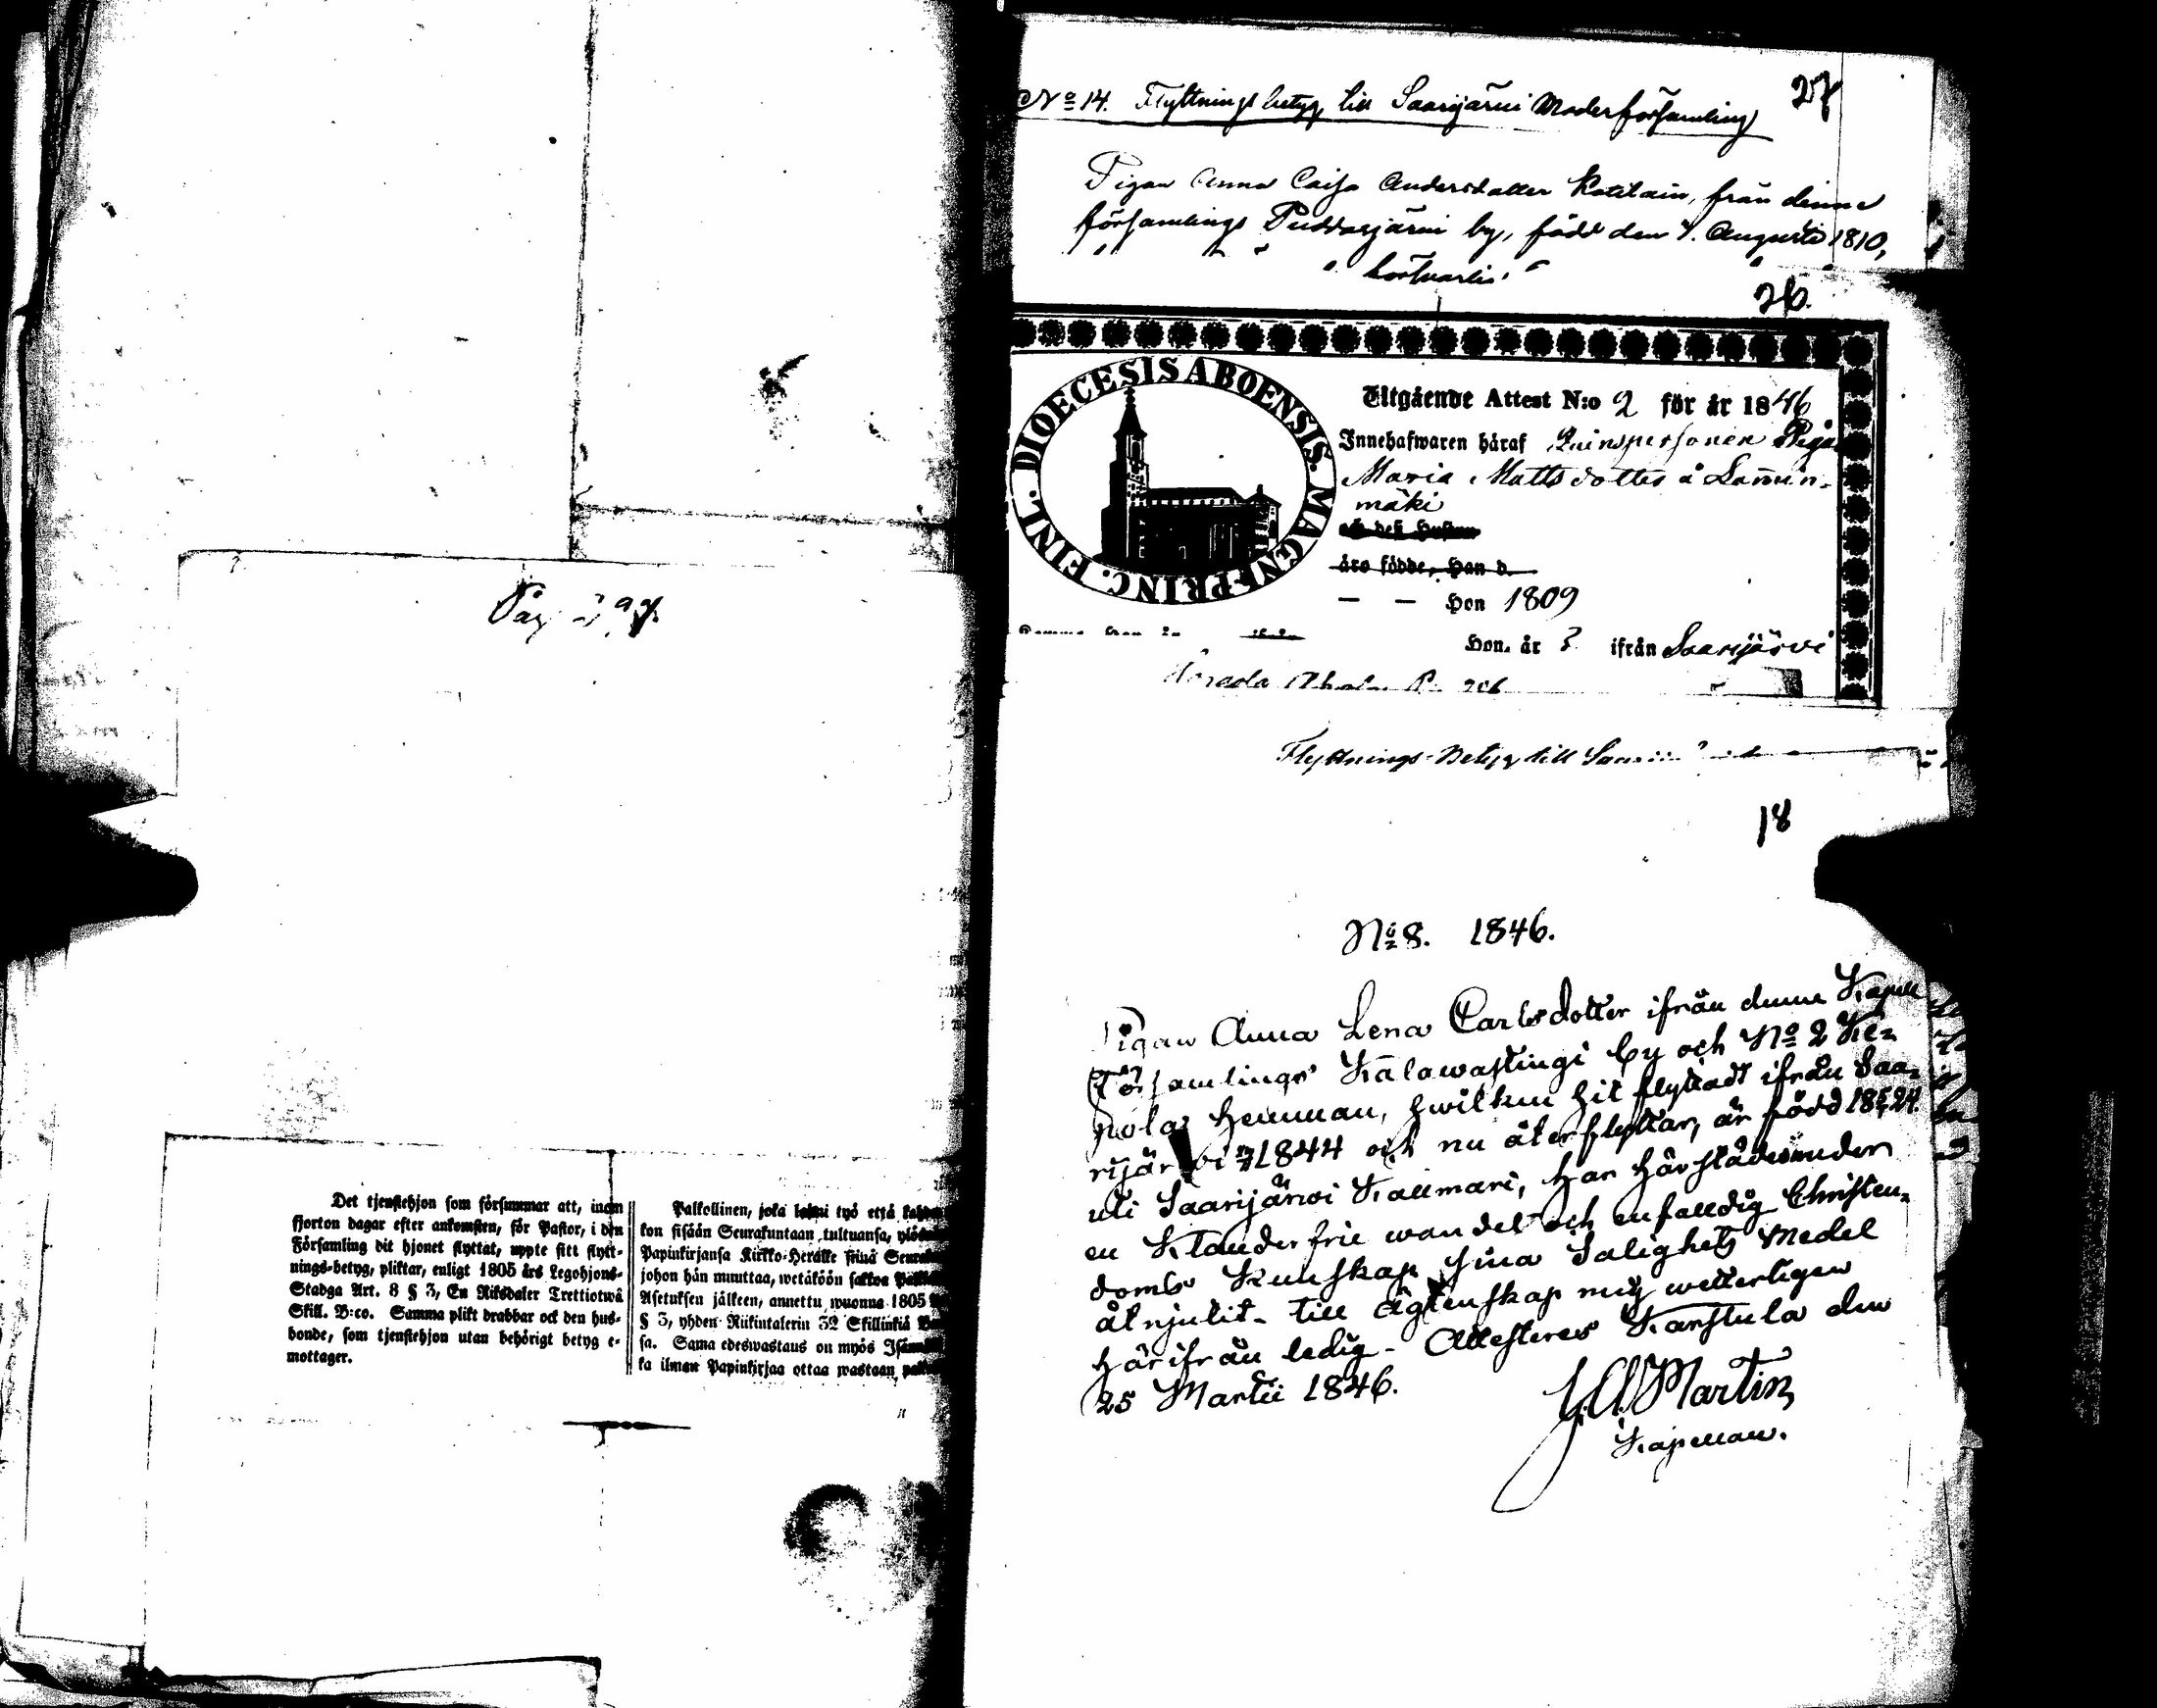 Pag 297.
Det tjenstehjon som försummar att, inom
fjorton dagar efter ankomsten, för Pastor, i den
Församling dit hjonet flyttat, uppte sitt flytt-
nings-betyg, pliktar, enligt 1805 års Legohjons-
Stadga Art. 8 § 3, En Riksdaler Trettiotwå
Skill. B:co. Samma plikt drabbar ock den hus-
bonde, som tjenstehjon utan behörigt betyg e-
mottager.
Palkollinen, joka laimi lyö että
kon sisään Seurakuntaan tultuansa,
Papinkirjansa Kirkko-Herralle siinä
johon hän muuttaa, wetäköön sakkoa
Asetuksen jälkeen, annettu wuonna 1805
§ 3, yhden Riikintalerin 32 Skillinkiä
sa. Sama edeswastaus on myös
ka ilman Papinkirjaa ottaa wastaan
No 14. Flyttnings betyg till Saarijärvi Moderförsamling
27
Pigan Anna Caisa Andersdotter Kotilain, från denna
församlings Puddasjärvi by, född den 4. Augusti 1810,
26.
DIOECESIS ABOENSIS. MAGNI PRINC. FINL.
Utgående Attest N:o 2 för år 1846
Innehafwaren häraf Qvinspersonen Piga
Maria Mattsdotter å Lamin-
mäki
och deß Hustru
äro födde, Han d.
— — Hon 1809
Hon. år 3 ifrån Saarijärvi
Flyttnings-Betyg till
18
No 8. 1846.
Pigan Anna Lena Carlsdotter ifrån denna Kapell
Församlings Kalawastingi by och No 2 Ke-
nola Hemman, hwilken hit flyttadt ifrån Saa-
rijärwi 1844 och nu återflyttar, är född
uti Saarijärwi Kallmari, har härstädes under
en Klanderfrie wandel och enfalldig Christen-
doms Kunskap sina Salighets Medel
åtnjutit - till Ägtenskap mig weterligen
härifrån ledig - Attesteres Karstula den
25 Martii 1846.
Martin
Kapellan.